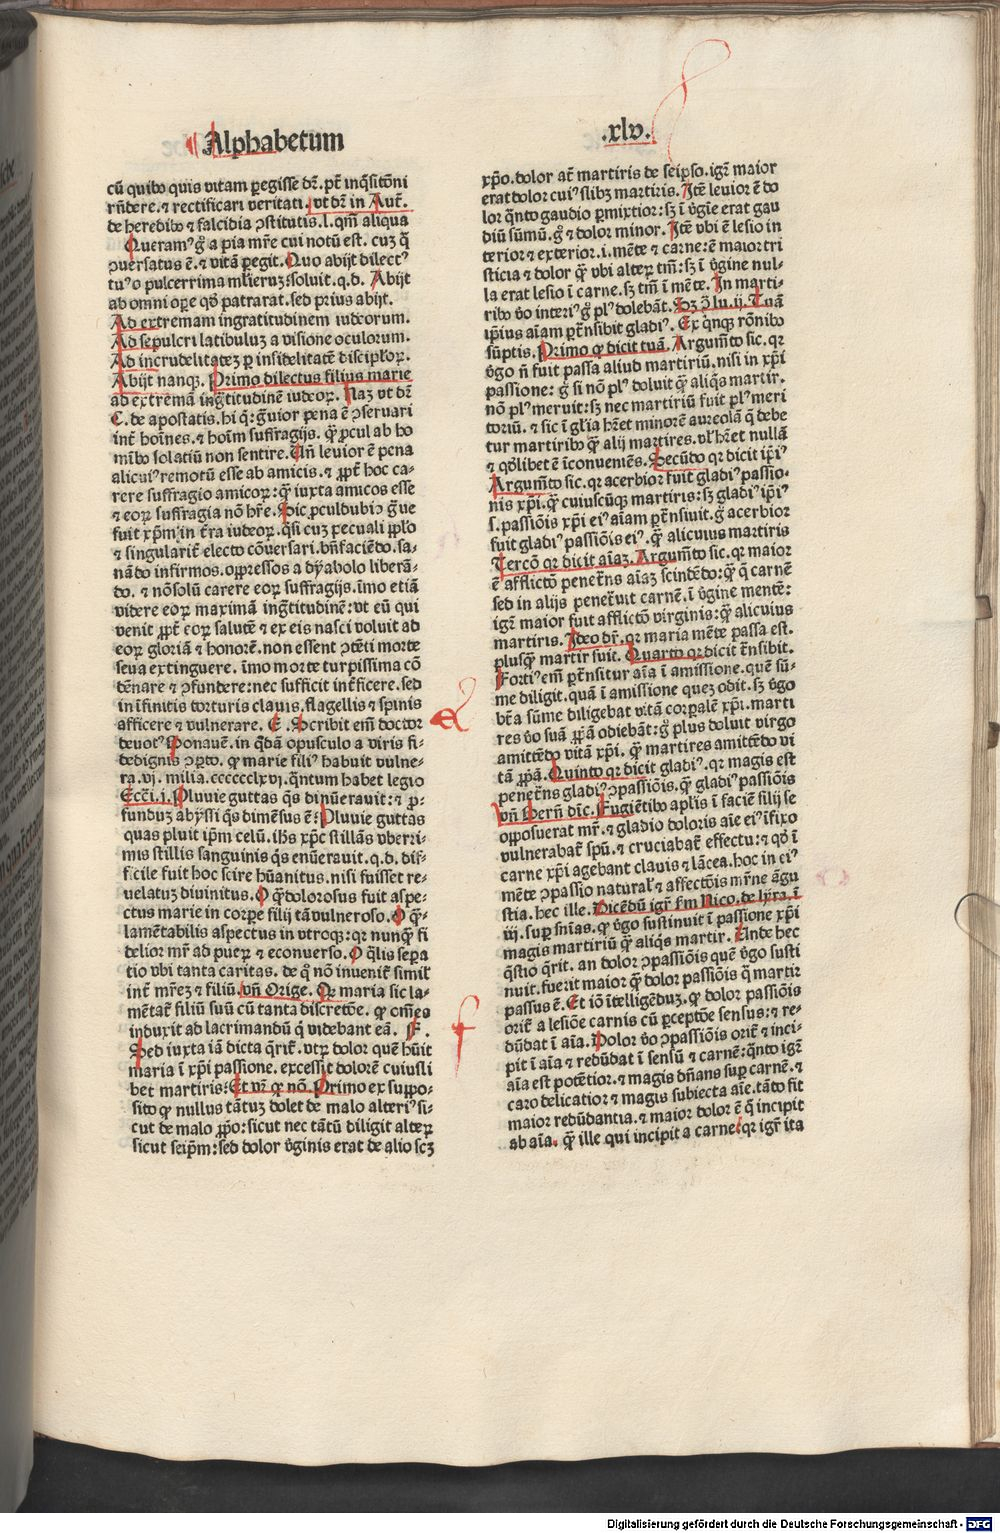 Alphabetum
.xlv.
cū quibꝰ quis vitam ꝑegisse dr̄. pt̄ inq̄sitōni
rn̄dere. ⁊ rectificari veritati. vt dr̄ in Aut̄.
de heredibꝰ ⁊ falcidia ꝯstitutis. l. qm̄ aliqua
Queramꝰ g̊ a pia mr̄e cui notū est. cuꝫ q̄
ꝯuersatus ē. ⁊ vitā ꝑegit. Quo abijt dilectꝰ
tuꝰ o pulcerrima ml̓ieruꝫ: soluit. q.d. Abijt
ab omni oꝑe qd̓ patrarat. sed priꝰ abijt.
Ad extremam ingratitudinem iudeorum.
Ad sepulcri latibuluꝫ a visione oculorum.
Ad incrudelitateꝫ ꝑ infidelitatē discipl̓oꝝ.
Abijt nanqꝫ. Primo dilectus filius marie
ad extremā ingr̄titudinē iudeoꝝ. Naꝫ vt dr̄
C. de apostatis. hi q̄: g̓uior pena ē ꝯseruari
int̄ hoīnes. ⁊ hoīm suffragijs. q̄ꝫ ꝓcul ab ho
mībꝰ solatiū non sentire. Vn̄ leuior ē pena
alicuiꝰ remotū esse ab amicis. ⁊ ꝓpt̄ hoc ca-
rere suffragio amicoꝝ: q̄ꝫ iuxta amicos esse
⁊ eoꝝ suffragia nō hr̄e. Sic ꝓculdubiꝰ g̓ue
fuit xp̄m in t̄ra iudeoꝝ. q̄si cuꝫ peculi ppl̓o
⁊ singularit̄ electo cōuersari. bn̄faciēdo. sa-
nādo infirmos. oppressos a dyabolo liberā-
do. ⁊ nōsolū carere eoꝝ suffragijs. imo etiā
videre eoꝝ maximā ingr̄titudinē: vt eū qui
venit ꝓpt̄ eoꝝ salutē ⁊ ex eis nasci voluit ad
eoꝝ gloriā ⁊ honorē. non essent ꝯtēti morte
seua extinguere. īmo morte turpissima cō
dēnare ⁊ ꝯfundere: nec sufficit int̄ficere. sed
in īfinitis torturis clauis. flagellis ⁊ spinis
afficere ⁊ vulnerare. E. Scribit em̄ doctor
deuotꝰ Bonauē. in q̄dā opusculo a viris fi-
dedignis ꝯꝑto. ꝙ marie filiꝰ habuit vulne-
ra. vj. milia. ccccccclxvj. q̄ntum habet legio
Ecc̄i. j. Pluuie guttas q̄s dinūerauit: ⁊ ꝓ-
funduꝫ abyssi q̄s dimēsus ē: Pluuie guttas
quas pluit ip̄m celū. ih̄s xp̄c stillās vberri-
mis stillis sanguinis q̄s enūerauit. q.d. dif-
ficile fuit hoc scire hūanitus. nisi fuisset re-
uelatuꝫ diuinitus. O q̄ꝫ dolorosus fuit aspe-
ctus marie in corꝑe filij tā vulneroso. O q̄ꝫ-
lamētabilis aspectus in vtroqꝫ: qꝛ nunq̄ꝫ fi
delior mr̄ ad pueꝝ ⁊ econuerso. O q̄lis sepa
tio vbi tanta caritas. de q̄ nō inuenit̄ simil̓
int̄ mr̄eꝫ ⁊ filiū. vn̄ Orige. Qꝛ maria sic la-
mētat̄ filiū suū cū tanta discretōe. ꝙ om̄es
induxit ad lacrimandū q̄ videbant eā. F.
Sed iuxta iā dicta q̄rit̄. vtꝝ dolor quē hūit
maria ī xp̄i passione. excessit dolorē cuiusli
bet martiris: Et vr̄ ꝙ nō. Primo ex suppo-
sito ꝙ nullus tātuꝫ dolet de malo alteriꝰ si-
cut de malo ꝓp̓o: sicut nec tātū diligit alteꝝ
sicut seip̄m: sed dolor v̓ginis erat de alio scꝫ
xp̄o. dolor at̄ martiris de seipso. igr̄ maior
erat dolor cuiꝰslibꝫ martiris. Itē leuior ē do
lor q̄nto gaudio ꝑmixtior: sꝫ ī v̓gīe erat gau
diū sūmū. g̊ ⁊ dolor minor. Itē vbi ē lesio in
terior ⁊ exterior. i. mēte ⁊ carne: ē maior tri
sticia ⁊ dolor q̄ꝫ vbi alteꝝ tm̄: sꝫ ī v̓gine nul-
la erat lesio ī carne. sꝫ tm̄ ī mēte. In marti-
ribꝰ v̓o interiꝰ g̊ plꝰ dolebāt. Sꝫ ꝯ̄ lu. ij. Tuā
ip̄ius aīam ꝑtn̄sibit gladiꝰ. Ex q̄nqꝫ rōnibꝰ
sūptis. Primo ꝙ dicit tuā. Argum̄to sic. qꝛ
v̓go n̄ fuit passa aliud martiriū. nisi in xp̄i
passione: g̊ si nō plꝰ doluit q̄ꝫ aliq̄s martir.
nō plꝰ meruit: sꝫ nec martiriū fuit plꝰ meri
toriū. ⁊ sic ī gl̓ia hr̄et minorē aureolā q̄ debe
tur martiribꝰ q̄ꝫ alij martires. vl̓ hr̄et nullā
⁊ qd̓libet ē īconueniēs. Secūdo qꝛ dicit ip̄iꝰ
Argum̄to sic. qꝛ acerbior fuit gladiꝰ passio-
nis xp̄i. q̄ꝫ cuiuscūqꝫ martiris: sꝫ gladiꝰ ip̄iꝰ
s. passiōis xp̄i eiꝰ aīam ꝑtn̄siuit. g̊ acerbior
fuit gladiꝰ passiōis eiꝰ. q̄ꝫ alicuius martiris
Tercō qꝛ dicit aīaꝫ. Argum̄to sic. qꝛ maior
ē afflictō penetr̄ns aīaꝫ scindēdo: q̄ꝫ q̄ carnē
sed in alijs penetr̄uit carnē. ī v̓gine mentē:
igr̄ maior fuit afflictō virginis: q̄ꝫ alicuius
martiris. Ideo dr̄. qꝛ maria mēte passa est.
plusq̄ꝫ martir fuit. Quarto qꝛ dicit tn̄sibit.
Fortiꝰ em̄ ꝑtn̄situr aīa ī amissione. quē sū-
me diligit. quā ī amissione queꝫ odit. sꝫ v̓go
bt̄a sūme diligebat vitā corꝑalē xp̄i. marti
res v̓o suā ꝓp̓ā odiebāt: g̊ plus doluit virgo
amittēdo vitā xp̄i. q̄ꝫ martires amittēdo vi
tā ꝓp̓ā. Quinto qꝛ dicit gladiꝰ. qꝛ magis est
penetr̄ns gladiꝰ ꝯpassiōis. q̄ꝫ gladiꝰ passiōis
vn̄ Bern̄ dic̄. Fugiētibꝰ apl̓is ī faciē filij se
opposuerat mr̄. ⁊ gladio doloris aīe eiꝰ īfixo
vulnerabat̄ spū. ⁊ cruciabat̄ effectu: ⁊ qd̓ ī
carne xp̄i agebant clauis ⁊ lācea. hoc in eiꝰ
mēte ꝯpassio natural̓ ⁊ affectōis mr̄ne āgu
stia. hec ille. Dicēdū igr̄ ẜm Nico. de lyra. ī
iij. suꝑ sn̄ias. ꝙ v̓go sustinuit ī passione xp̄i
magis martiriū q̄ꝫ aliq̄s martir. Vnde hec
q̄stio q̄rit. an dolor ꝯpassiōis quē v̓go susti
nuit. fuerit maior q̄ꝫ dolor passiōis q̄ martir
passus ē. Et iō ītelligēduꝫ. ꝙ dolor passiōis
orit̄ a lesiōe carnis cū ꝑceptōe sensus: ⁊ re-
dūdat ī aīa. Dolor v̓o ꝯpassiōis orit̄ ⁊ inci-
pit ī aīa ⁊ redūdat ī sensū ⁊ carnē: q̄nto igr̄
aīa est potētior. ⁊ magis dn̄ans suꝑ carnē. ⁊
caro delicatior ⁊ magis subiecta aīe. tāto fit
maior redūdantia. ⁊ maior dolor ē q̄ incipit
ab aīa. q̄ꝫ ille qui incipit a carne: qꝛ igr̄ ita
E
f
Digitalisierung gefördert durch die Deutsche Forschungsgemeinschaft - DFG